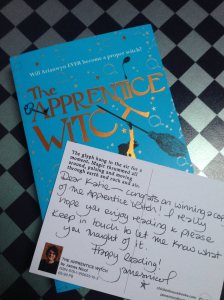 Will Arianwyn EVER become a proper witch?
The
APPRENTICE
WITCH
The glyph hung in the air for a
moment. Magic thrummed all
around, pulsing and moving
through earth and rock and air.
Dear Katie - congrats on winning a copy
of The Apprentice Witch! I really
hope you enjoy reading & please
keep in touch to let me know what
you thought of it.
Happy Reading!
THE APPRENTICE WITCH
by James Nicol